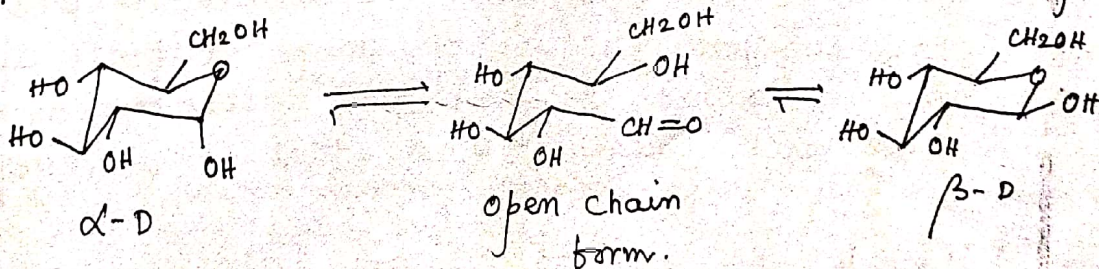 CH2OH
HO
O
HO
OH
OH
α-D
CH2OH
HO
OH
HO
CH=O
OH
Open chain
form.
CH2OH
HO
O
OH
HO
OH
β-D